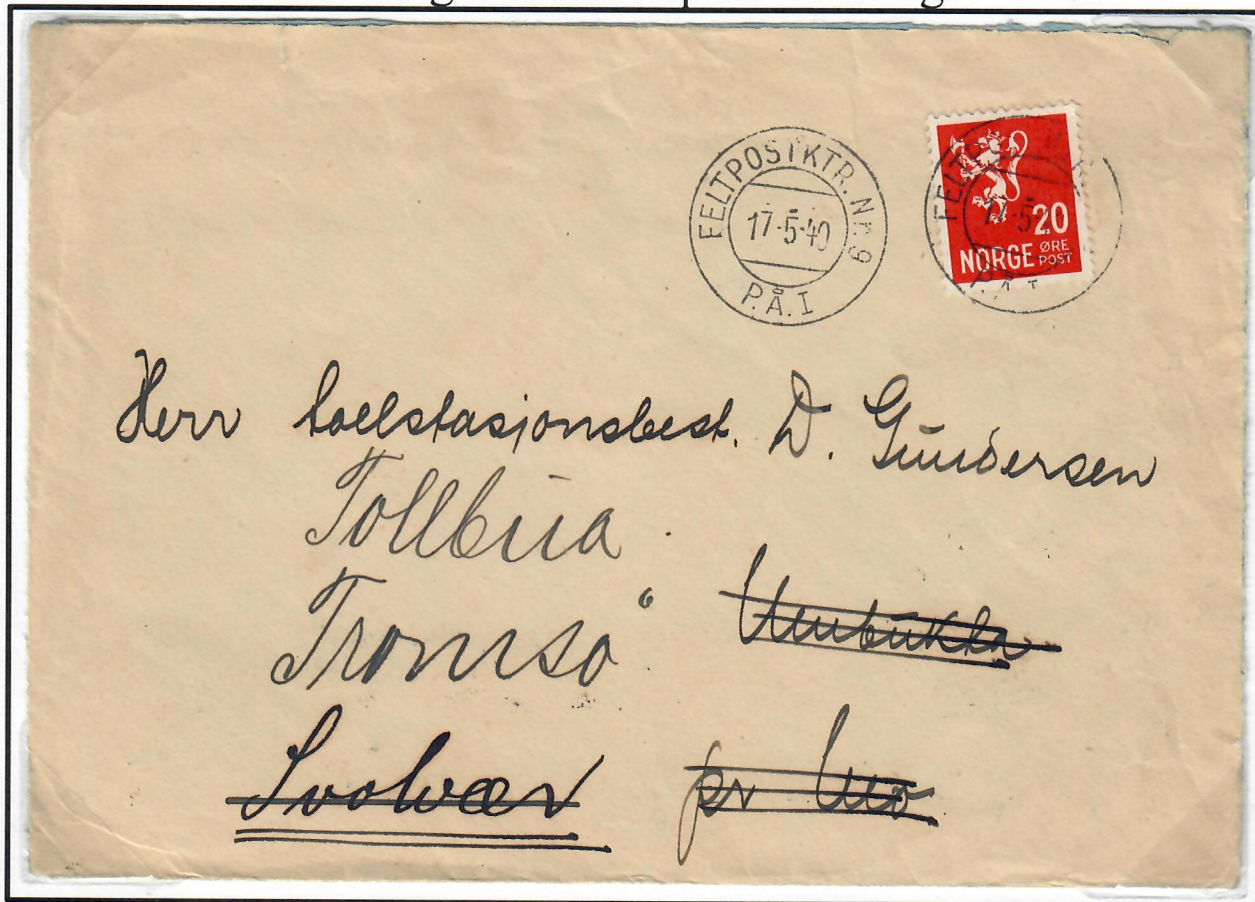 FELTPOSTKTR. NR. 9
17-5-40
P.Å.I
20
NORGE ØRE POST
Herr tollstasjonsbest. D. Gundersen
Tollbua
Tromsö Umbukta
Svolvær pr Mo